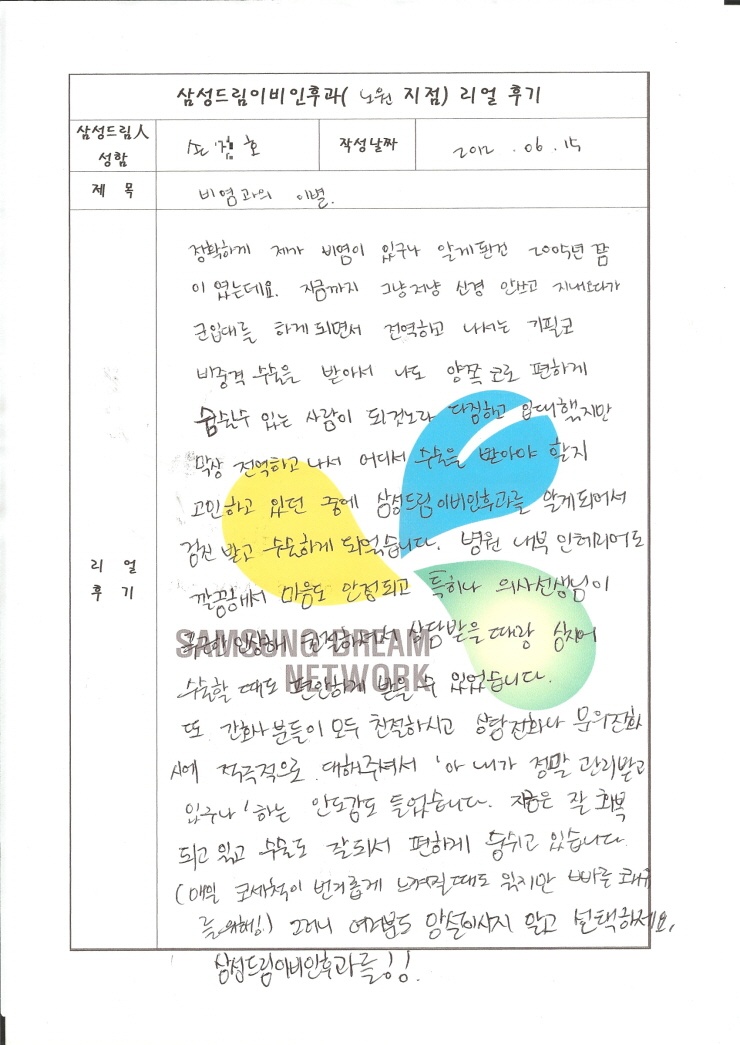 삼성드림이비인후과( 노원 지점) 리얼 후기
삼성드림人
성함
호
작성날짜
2012 . 06. 15
제 목
비염과의 이별.
리 얼
후 기
정확하게 제가 비염이 있구나 알게된건 2005년 쯤
이 였는데요. 지금까지 그냥저냥 신경 안쓰고 지내오다가
군입대를 하게 되면서 전역하고 나서는 기필코
비중격 수술을 받아서 나도 양쪽 코로 편하게
숨쉴수 있는 사람이 되겠노라 다짐하고 입대했지만
막상 전역하고 나서 어디서 수술을 받아야 할지
고민하고 있던 중에 삼성드림이비인후과를 알게되어서
검진 받고 수술하게 되었습니다. 병원 내부 인테리어도
깔끔해서 마음도 안정되고 특히나 의사선생님이
친절하셔서 상담받을 때랑 심지어
SAMSUNG DREAM
NETWORK
수술할 때도 편안하게 받을 수 있었습니다.
또 간호사 분들이 모두 친절하시고 상담전화나 문의전화
시에 적극적으로 대해주셔서 '아 내가 정말 관리받고
있구나' 하는 안도감도 들었습니다. 지금은 잘 회복
되고 있고 수술도 잘되서 편하게 숨쉬고 있습니다.
(매일 코세척이 번거롭게 느껴질때도 있지만 빠른 쾌유
를 위해!) 그러니 여러분도 망설이시지 말고 선택하세요,
삼성드림이비인후과를!!